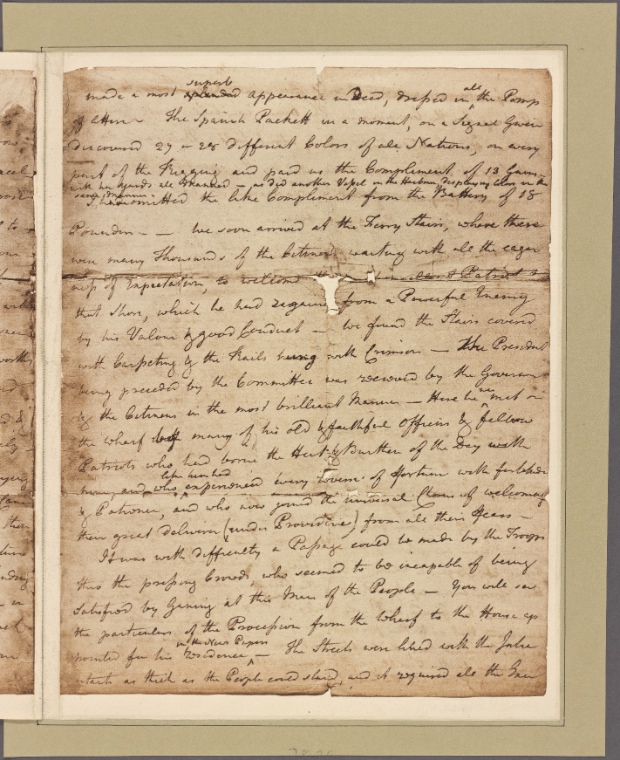 superb
made a most splendid appearance indeed, dressed in all the Pomp
of attire — The Spanish Packett in a moment, on a Signal Given
discovered 27 or 28 different Colors of all Nations, on every
part of the Rigging and paid us the Compliment of 13 Guns
with her Yards all Manned — as did another Vessel in the Harbour displaying Colors in the
same manner — I have omitted the like Complement from the Battery of 18
Pounders — We soon arrived at the Ferry Stairs, where there
were many Thousands of the Citizens waiting with all the eager
ness of Expectation, to welcome Patriot to
that Shore, which he had regained from a Powerful Enemy
by his Valour & good Conduct — We found the Stairs covered
with Carpeting & the Rails hung with Crimson — The President
being preceded by the Committee was received by the Governor
& the Citizens in the most brilliant Manner — Here he was met on
the wharf by many of his old & faithful Officers & fellow
Patriots who had borne the Heat & Burthen of the Day with
him, and who like him had experienced every reverse of fortune with fortitude
& Patience, and who now joined the universal Chorus of welcoming
their great deliverer (under Providence) from all their Fears —
It was with difficulty a Passage could be made by the Troops
thro the pressing Crowds, who seemed to be incapable of being
satisfied by Gazing at this Man of the People — You will see
the particulars of the Procession from the Wharf to the House ap
pointed for his residence in the News Papers — The Streets were lined with the Inha
bitants as thick as the People could stand, and it required all the